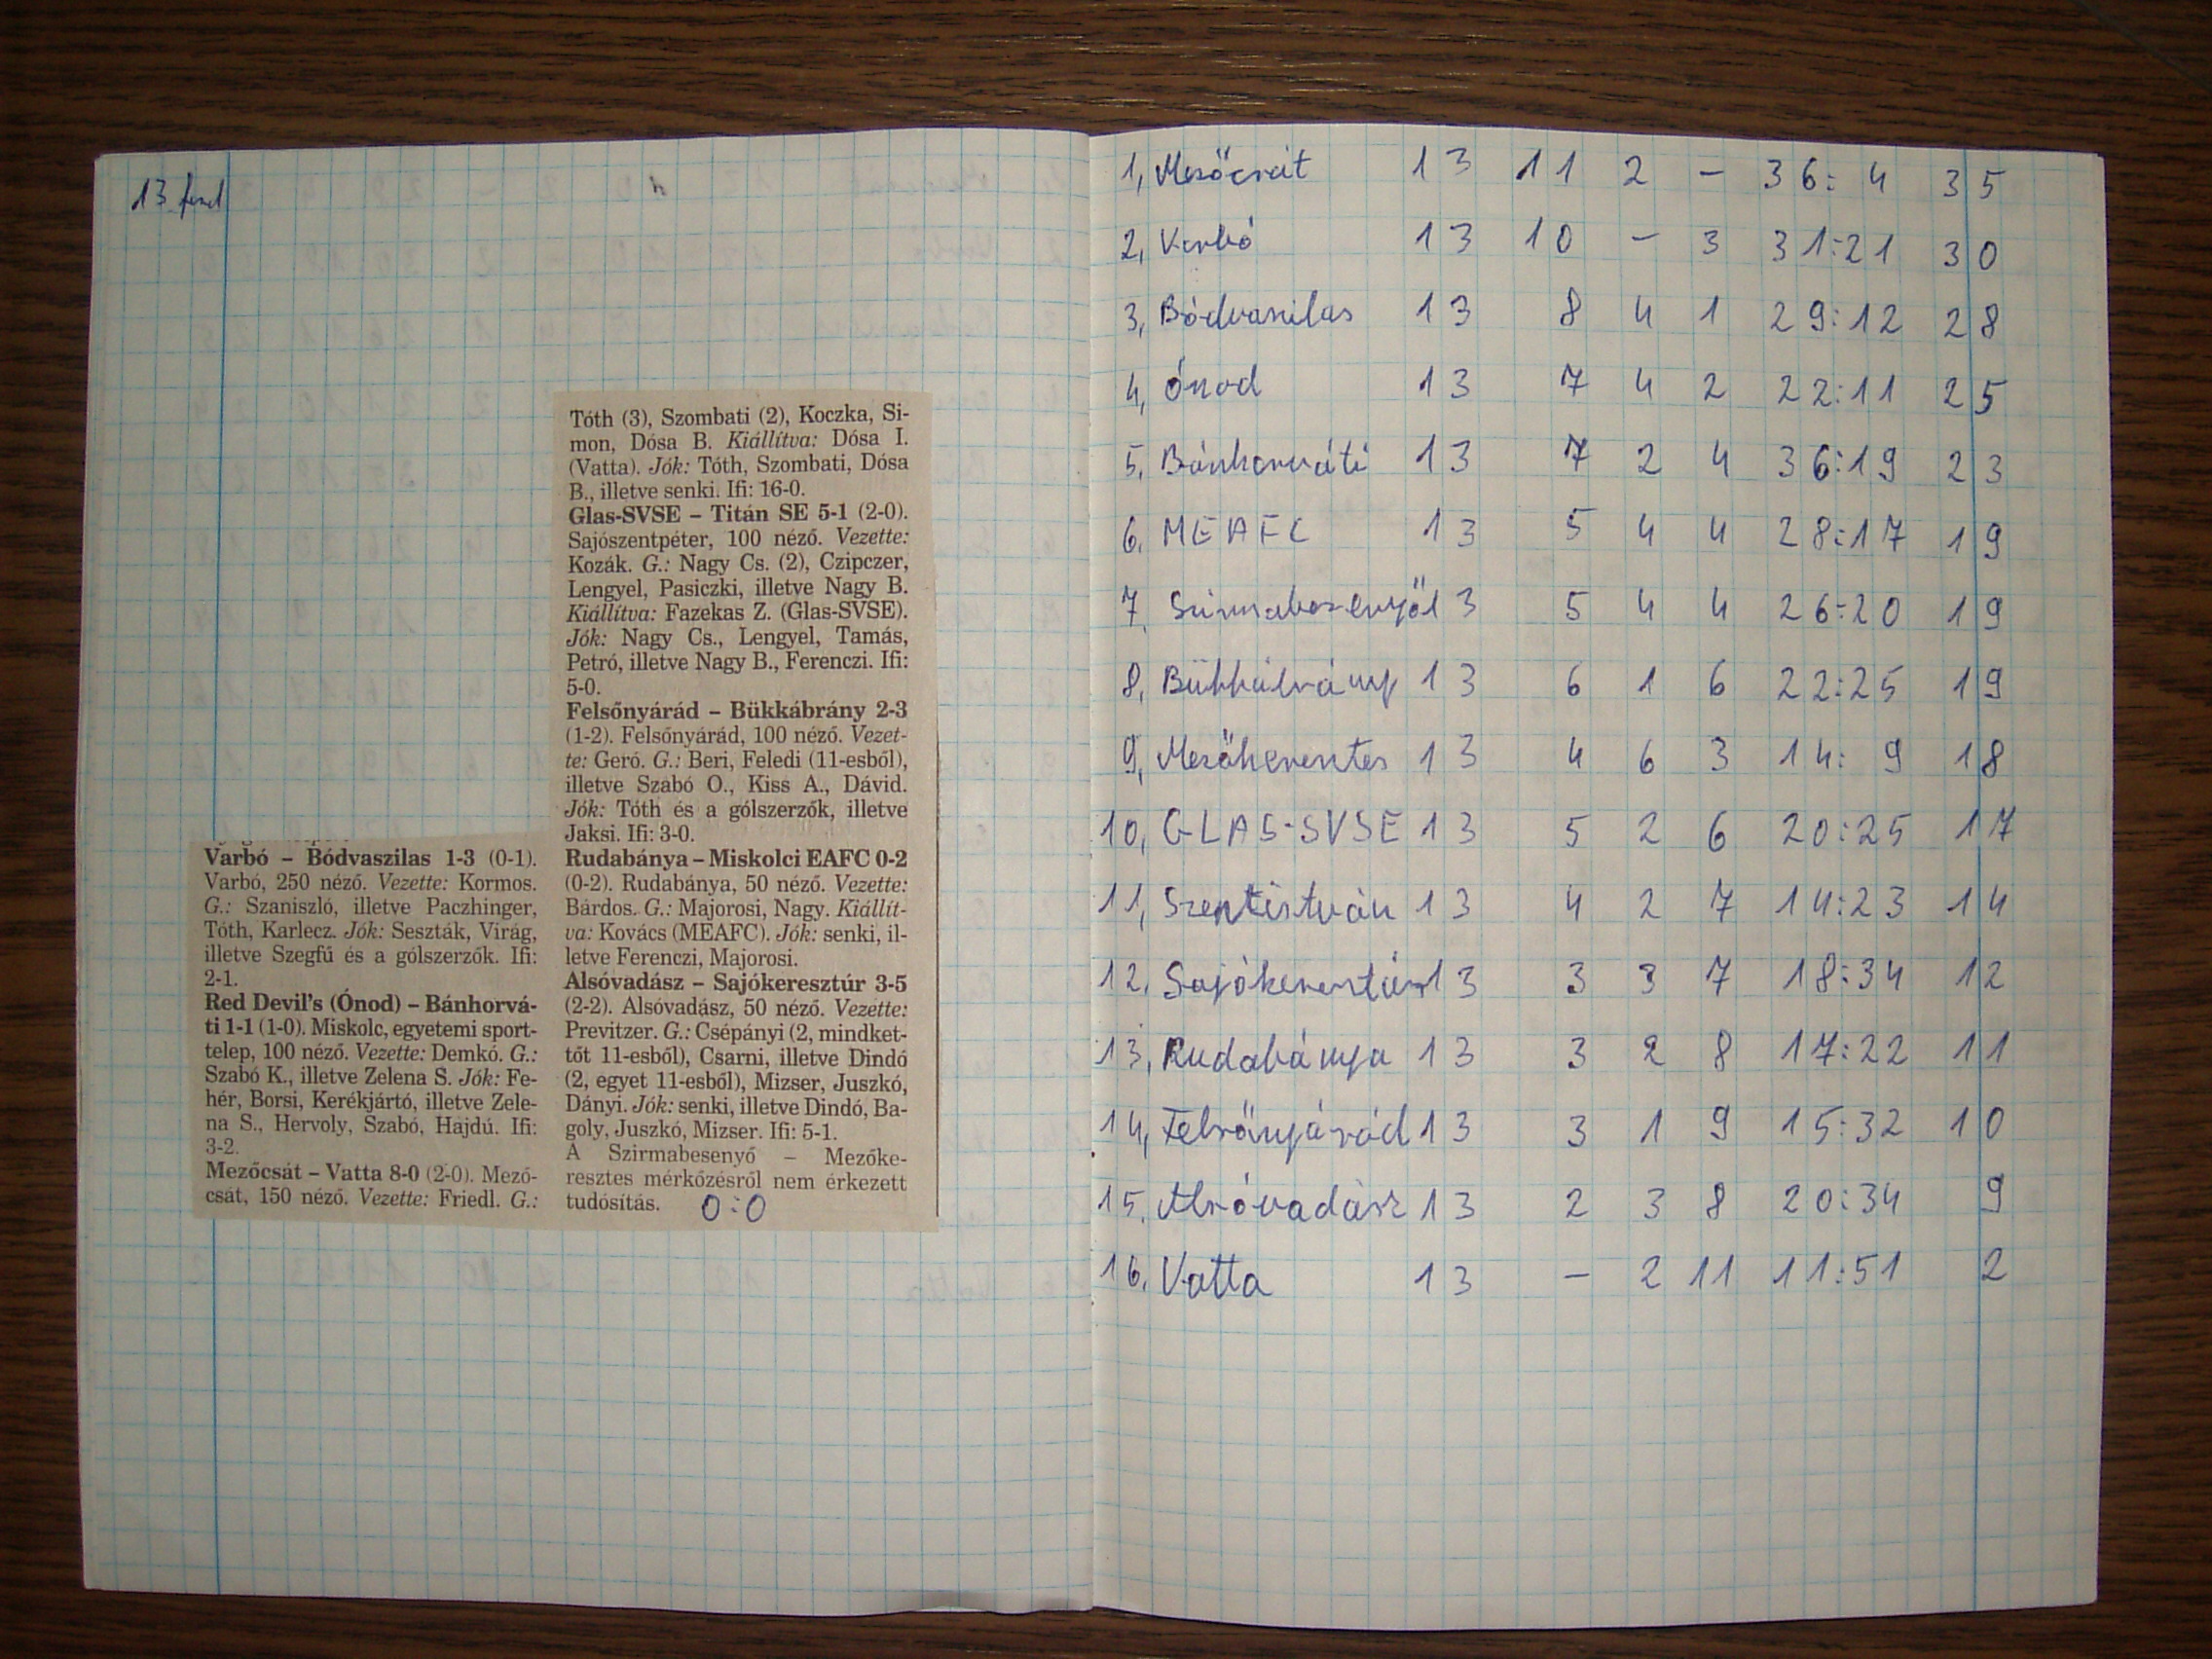 13 ford
Varbó – Bódvaszilas 1-3 (0-1).
Varbó, 250 néző. Vezette: Kormos.
G.: Szaniszló, illetve Paczhinger,
Tóth, Karlecz. Jók: Seszták, Virág,
illetve Szegfű és a gólszerzők. Ifi:
2-1.
Red Devil's (Ónod) – Bánhorvá-
ti 1-1 (1-0). Miskolc, egyetemi sport-
telep, 100 néző. Vezette: Demkó. G.:
Szabó K., illetve Zelena S. Jók: Fe-
hér, Borsi, Kerékjártó, illetve Zele-
na S., Hervoly, Szabó, Hajdú. Ifi:
3-2.
Mezőcsát – Vatta 8-0 (2-0). Mező-
csát, 150 néző. Vezette: Friedl. G.:
Tóth (3), Szombati (2), Koczka, Si-
mon, Dósa B. Kiállítva: Dósa I.
(Vatta). Jók: Tóth, Szombati, Dósa
B., illetve senki. Ifi: 16-0.
Glas-SVSE – Titán SE 5-1 (2-0).
Sajószentpéter, 100 néző. Vezette:
Kozák. G.: Nagy Cs. (2), Czipczer,
Lengyel, Pasiczki, illetve Nagy B.
Kiállítva: Fazekas Z. (Glas-SVSE).
Jók: Nagy Cs., Lengyel, Tamás,
Petró, illetve Nagy B., Ferenczi. Ifi:
5-0.
Felsőnyárád – Bükkábrány 2-3
(1-2). Felsőnyárád, 100 néző. Vezet-
te: Geró. G.: Beri, Feledi (11-esből),
illetve Szabó O., Kiss A., Dávid.
Jók: Tóth és a gólszerzők, illetve
Jaksi. Ifi: 3-0.
Rudabánya – Miskolci EAFC 0-2
(0-2). Rudabánya, 50 néző. Vezette:
Bárdos. G.: Majorosi, Nagy. Kiállít-
va: Kovács (MEAFC). Jók: senki, il-
letve Ferenczi, Majorosi.
Alsóvadász – Sajókeresztúr 3-5
(2-2). Alsóvadász, 50 néző. Vezette:
Previtzer. G.: Csépányi (2, mindket-
tőt 11-esből), Csarni, illetve Dindó
(2, egyet 11-esből), Mizser, Juszkó,
Dányi. Jók: senki, illetve Dindó, Ba-
goly, Juszkó, Mizser. Ifi: 5-1.
A Szirmabesenyő – Mezőke-
resztes mérkőzésről nem érkezett
tudósítás. 0:0
1, Mezőcsát 13 11 2 – 36:4 35
2, Varbó 13 10 – 3 31:21 30
3, Bódvaszilas 13 8 4 1 29:12 28
4, Ónod 13 7 4 2 22:11 25
5, Bánhorváti 13 7 2 4 36:19 23
6. MEAFC 13 5 4 4 28:17 19
7. Szirmabesenyő 13 5 4 4 26:20 19
8, Bükkábrány 13 6 1 6 22:25 19
9, Mezőkeresztes 13 4 6 3 14:9 18
10, GLAS-SVSE 13 5 2 6 20:25 17
11, Szentistván 13 4 2 7 14:23 14
12. Sajókeresztúr 13 3 3 7 18:34 12
13, Rudabánya 13 3 2 8 17:22 11
14, Felsőnyárád 13 3 1 9 15:32 10
15. Alsóvadász 13 2 3 8 20:34 9
16. Vatta 13 – 2 11 11:51 2